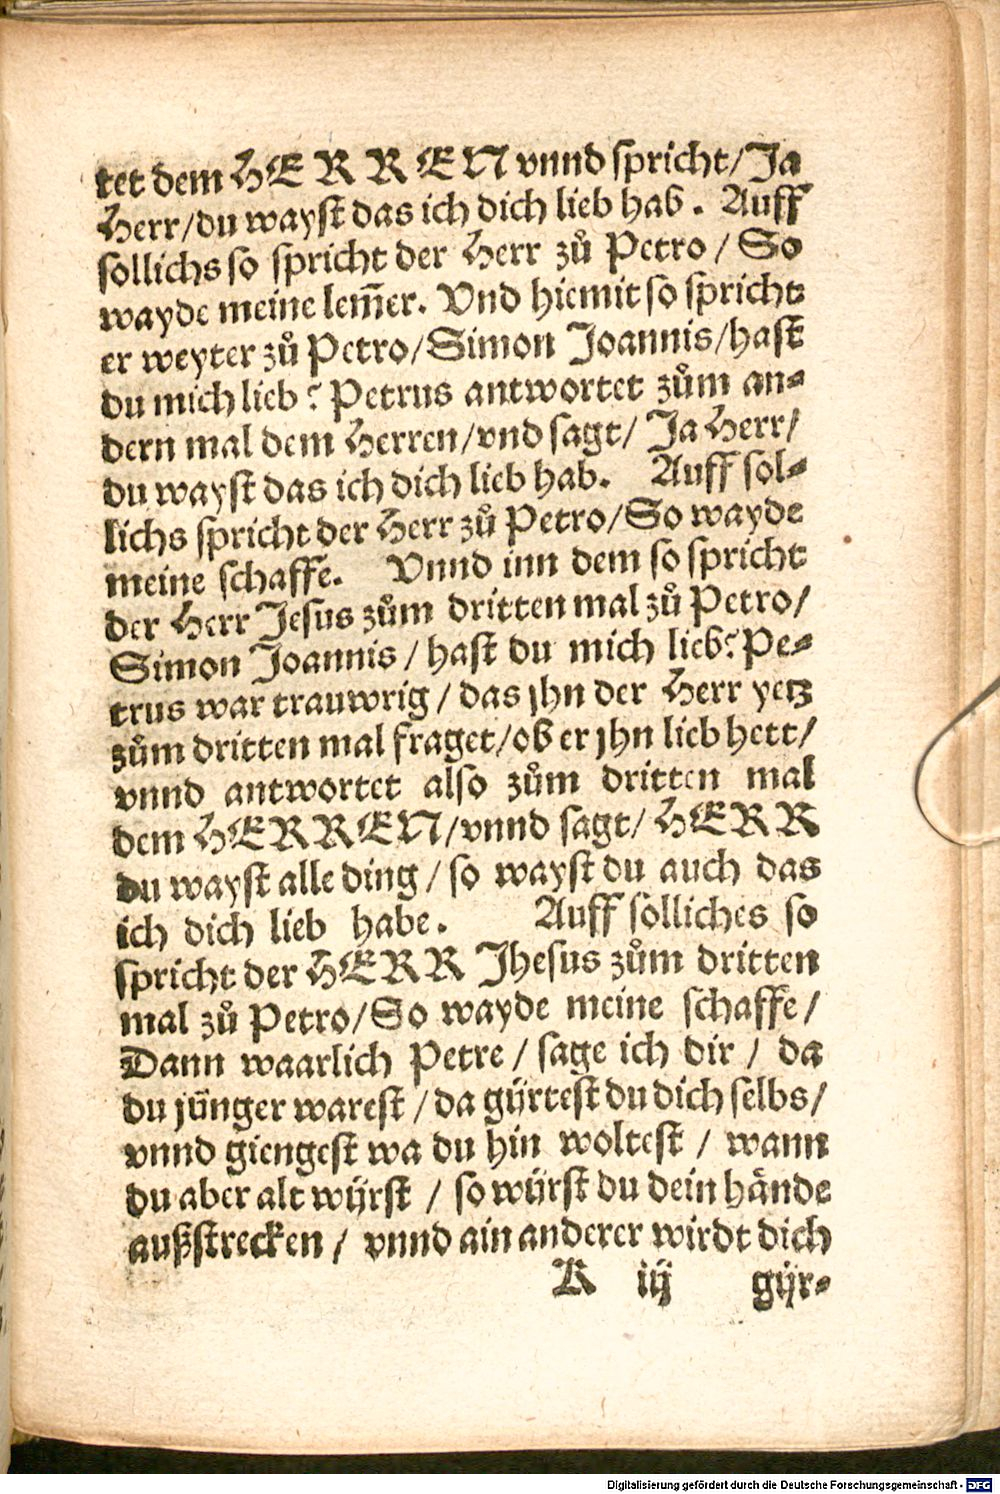 tet dem HERREN vnnd spricht/Ja
Herr/du wayst das ich dich lieb hab. Auff
sollichs so spricht der Herr zuͦ Petro/ So
wayde meine lem̃er. Vnd hiemit so spricht
er weyter zuͦ Petro/Simon Joannis/hast
du mich lieb? Petrus antwortet zuͦm an-
dern mal dem Herren/vnd sagt/ Ja Herr/
du wayst das ich dich lieb hab. Auff sol-
lichs spricht der Herr zuͦ Petro/So wayde
meine schaffe. Vnnd inn dem so spricht
der Herr Jesus zuͦm dritten mal zuͦ Petro/
Simon Joannis/ hast du mich lieb? Pe-
trus war trauwrig/ das jhn der Herr yetz
zuͦm dritten mal fraget/ob er jhn lieb hett/
vnnd antwortet also zuͦm dritten mal
dem HERREN/vnnd sagt/ HERR
du wayst alle ding/ so wayst du auch das
ich dich lieb habe. Auff solliches so
spricht der HERR Jhesus zuͦm dritten
mal zuͦ Petro/So wayde meine schaffe/
Dann waarlich Petre/ sage ich dir/ da
du jünger warest/ da gürtest du dich selbs/
vnnd giengest wa du hin woltest/ wann
du aber alt würst/ so würst du dein hånde
außstrecken/ vnnd ain anderer wirdt dich
K iij gür-
Digitalisierung gefördert durch die Deutsche Forschungsgemeinschaft - DFG